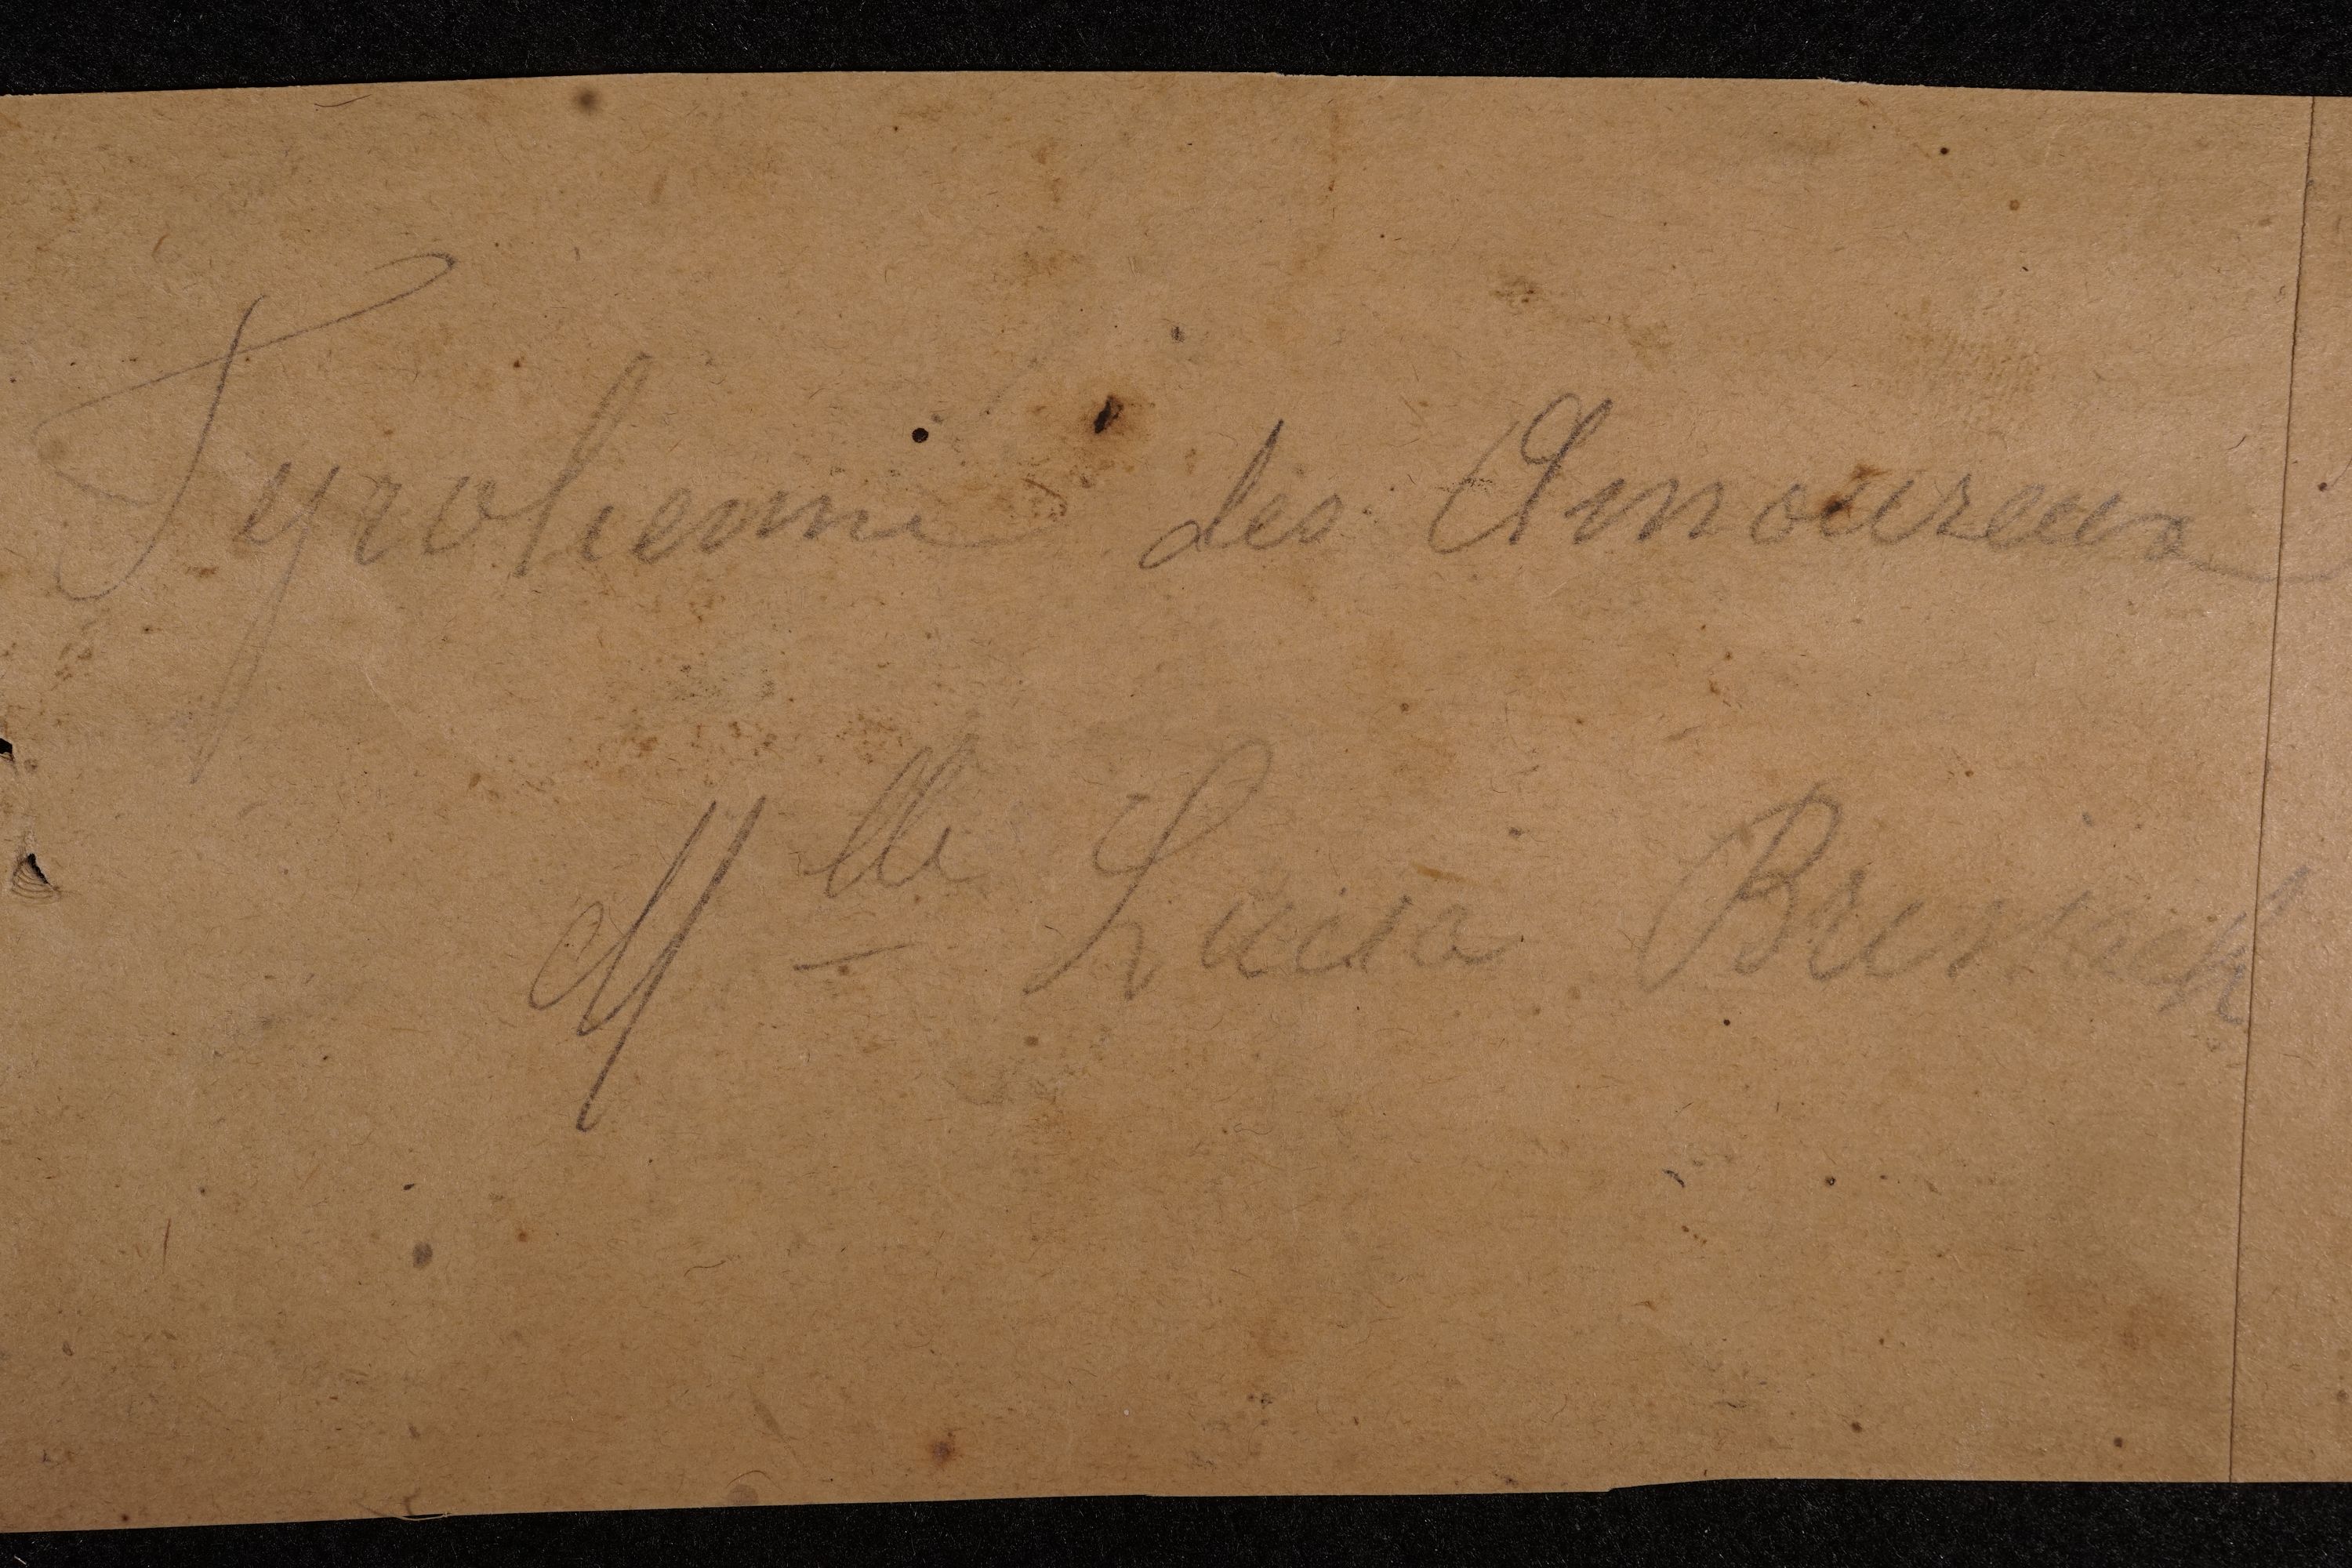 Tyrolienne des Amoureux
Mlle Lucia